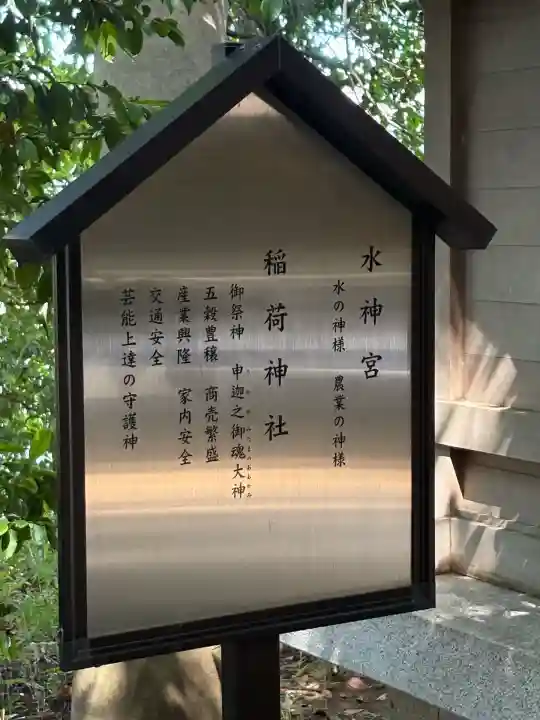 水神宮
水の神様 農業の神様
稲荷神社
御祭神 申迦之御魂大神
五穀豊穣 商売繁盛
産業興隆 家内安全
交通安全
芸能上達の守護神